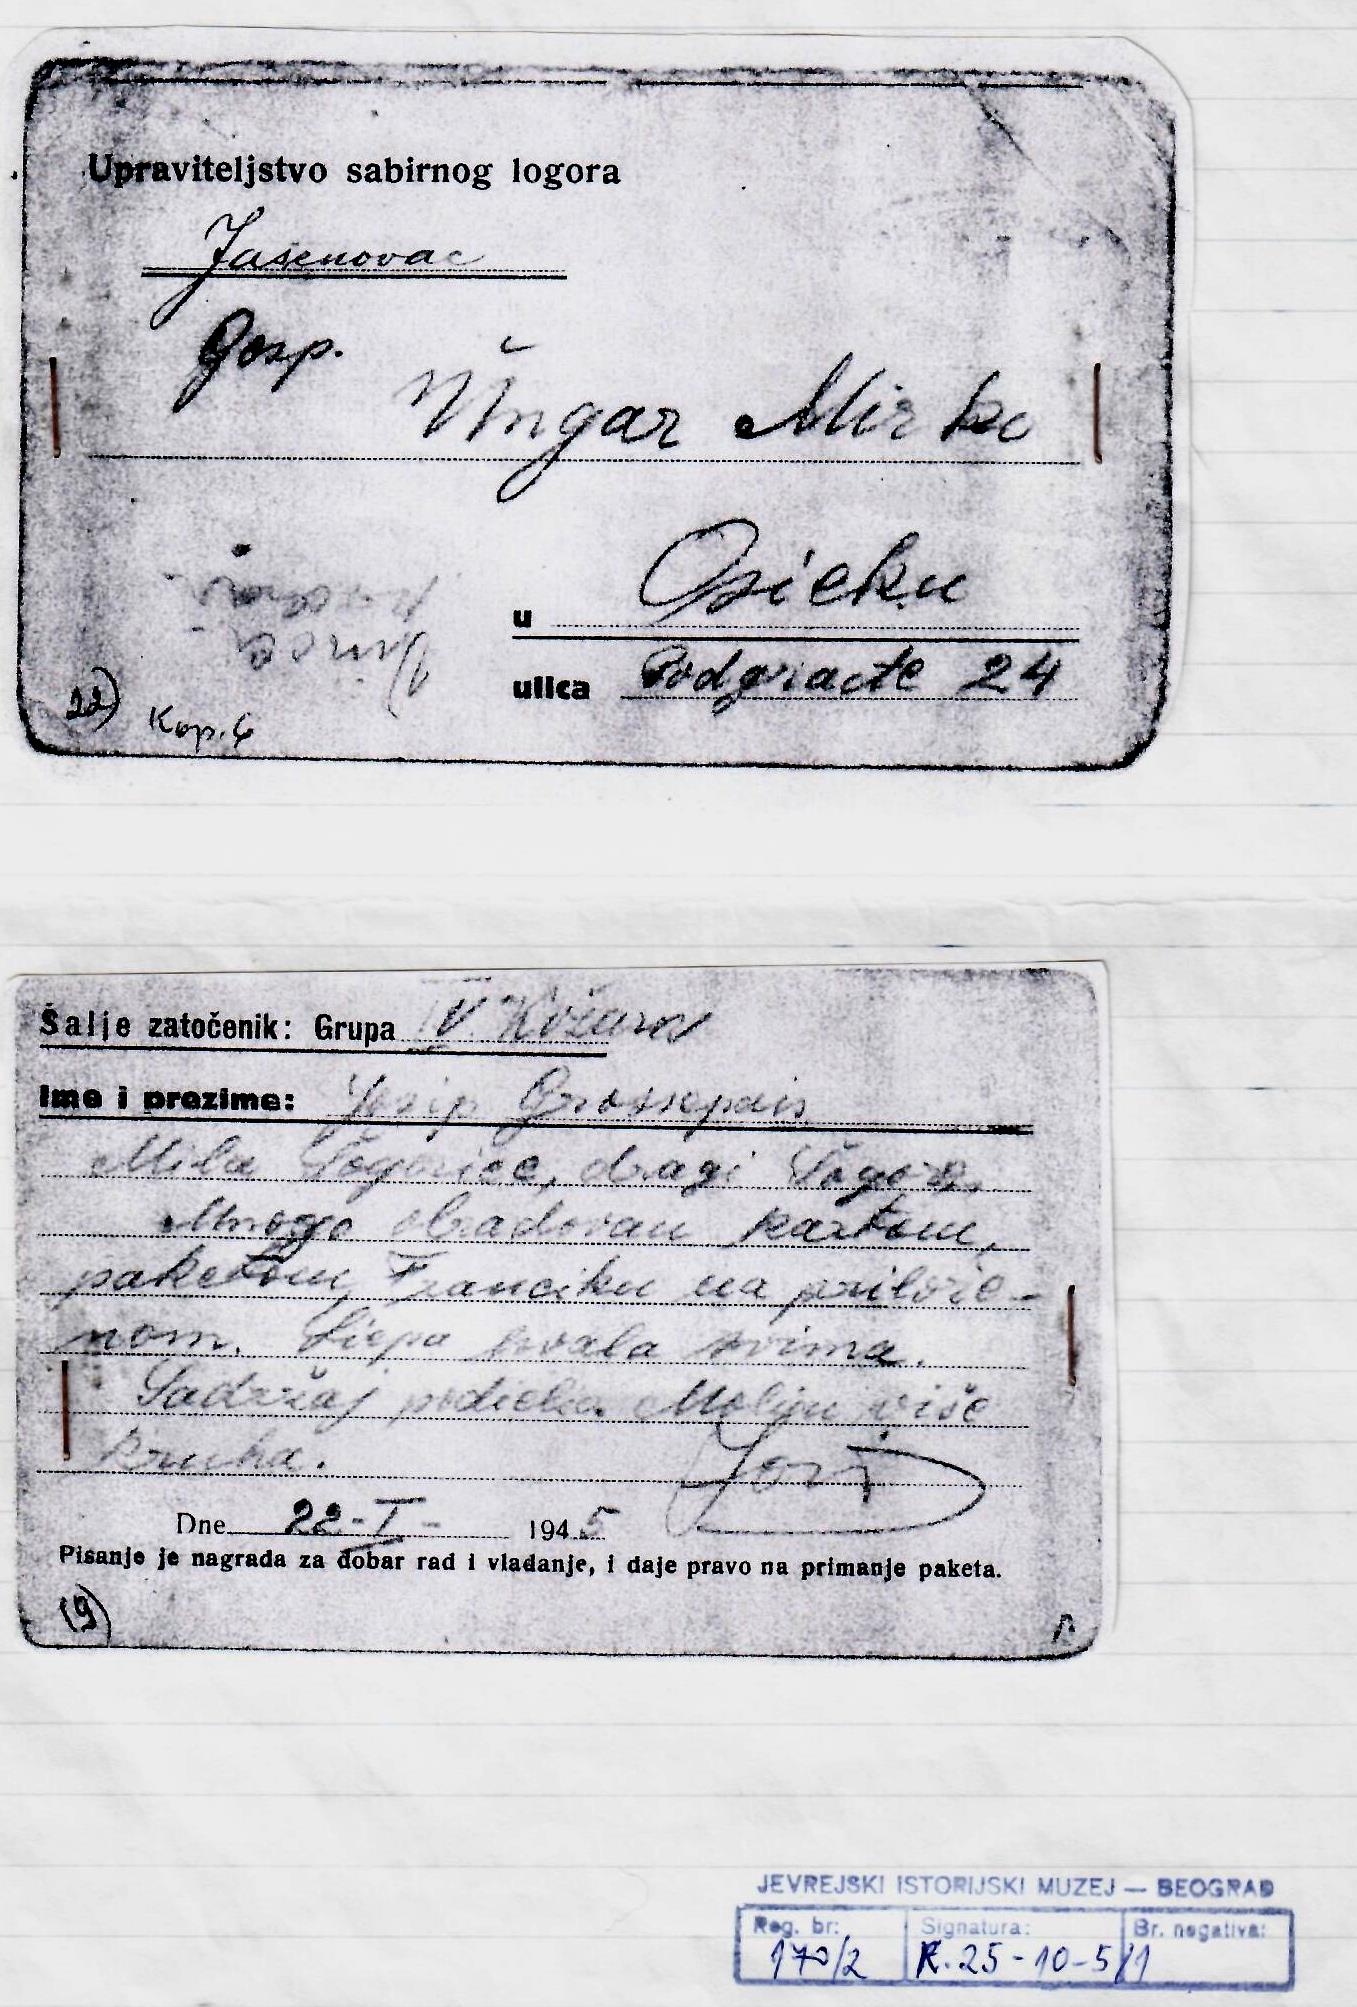 Upraviteljstvo sabirnog logora
Jasenovac
Gosp.
Ungar Mirko
u Osieku
ulica Podgrađe 24
22) Kop. 6
Šalje zatočenik: Grupa IV. Kožara
Ime i prezime: Josip Grossepais
Mila, dragi
Mnogo obradovan kartom,
paketom, Franciku na prilože-
nom. Liepa hvala svima.
Sadržaj podielu. Molim više
kruha.
Dne 22-I- 1945
Pisanje je nagrada za dobar rad i vladanje, i daje pravo na primanje paketa.
19)
JEVREJSKI ISTORIJSKI MUZEJ — BEOGRAD
Reg. br: Signatura: Br. negativa:
170/2 K. 25-10-5/1